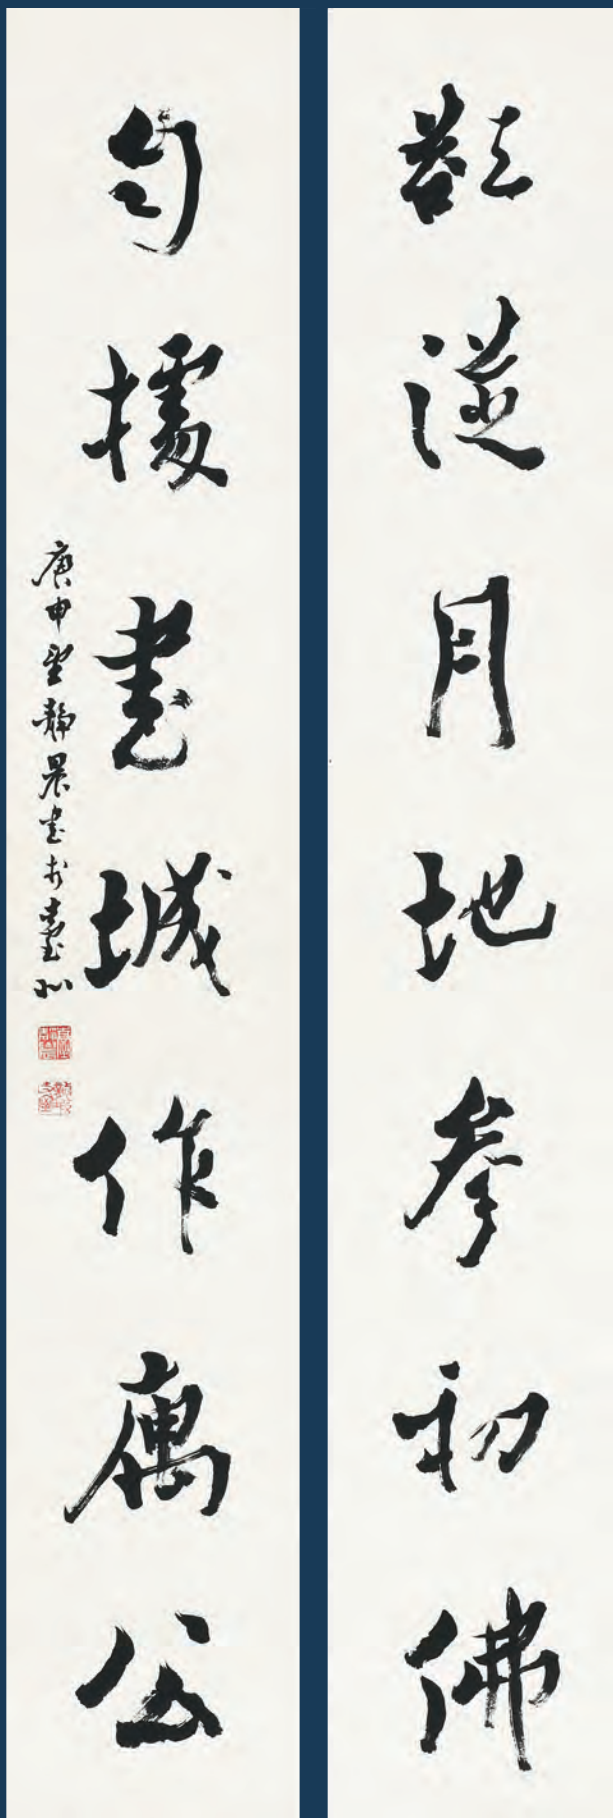 欲從月地參初佛
自據書城作寓公
庚申臺靜農書於臺北